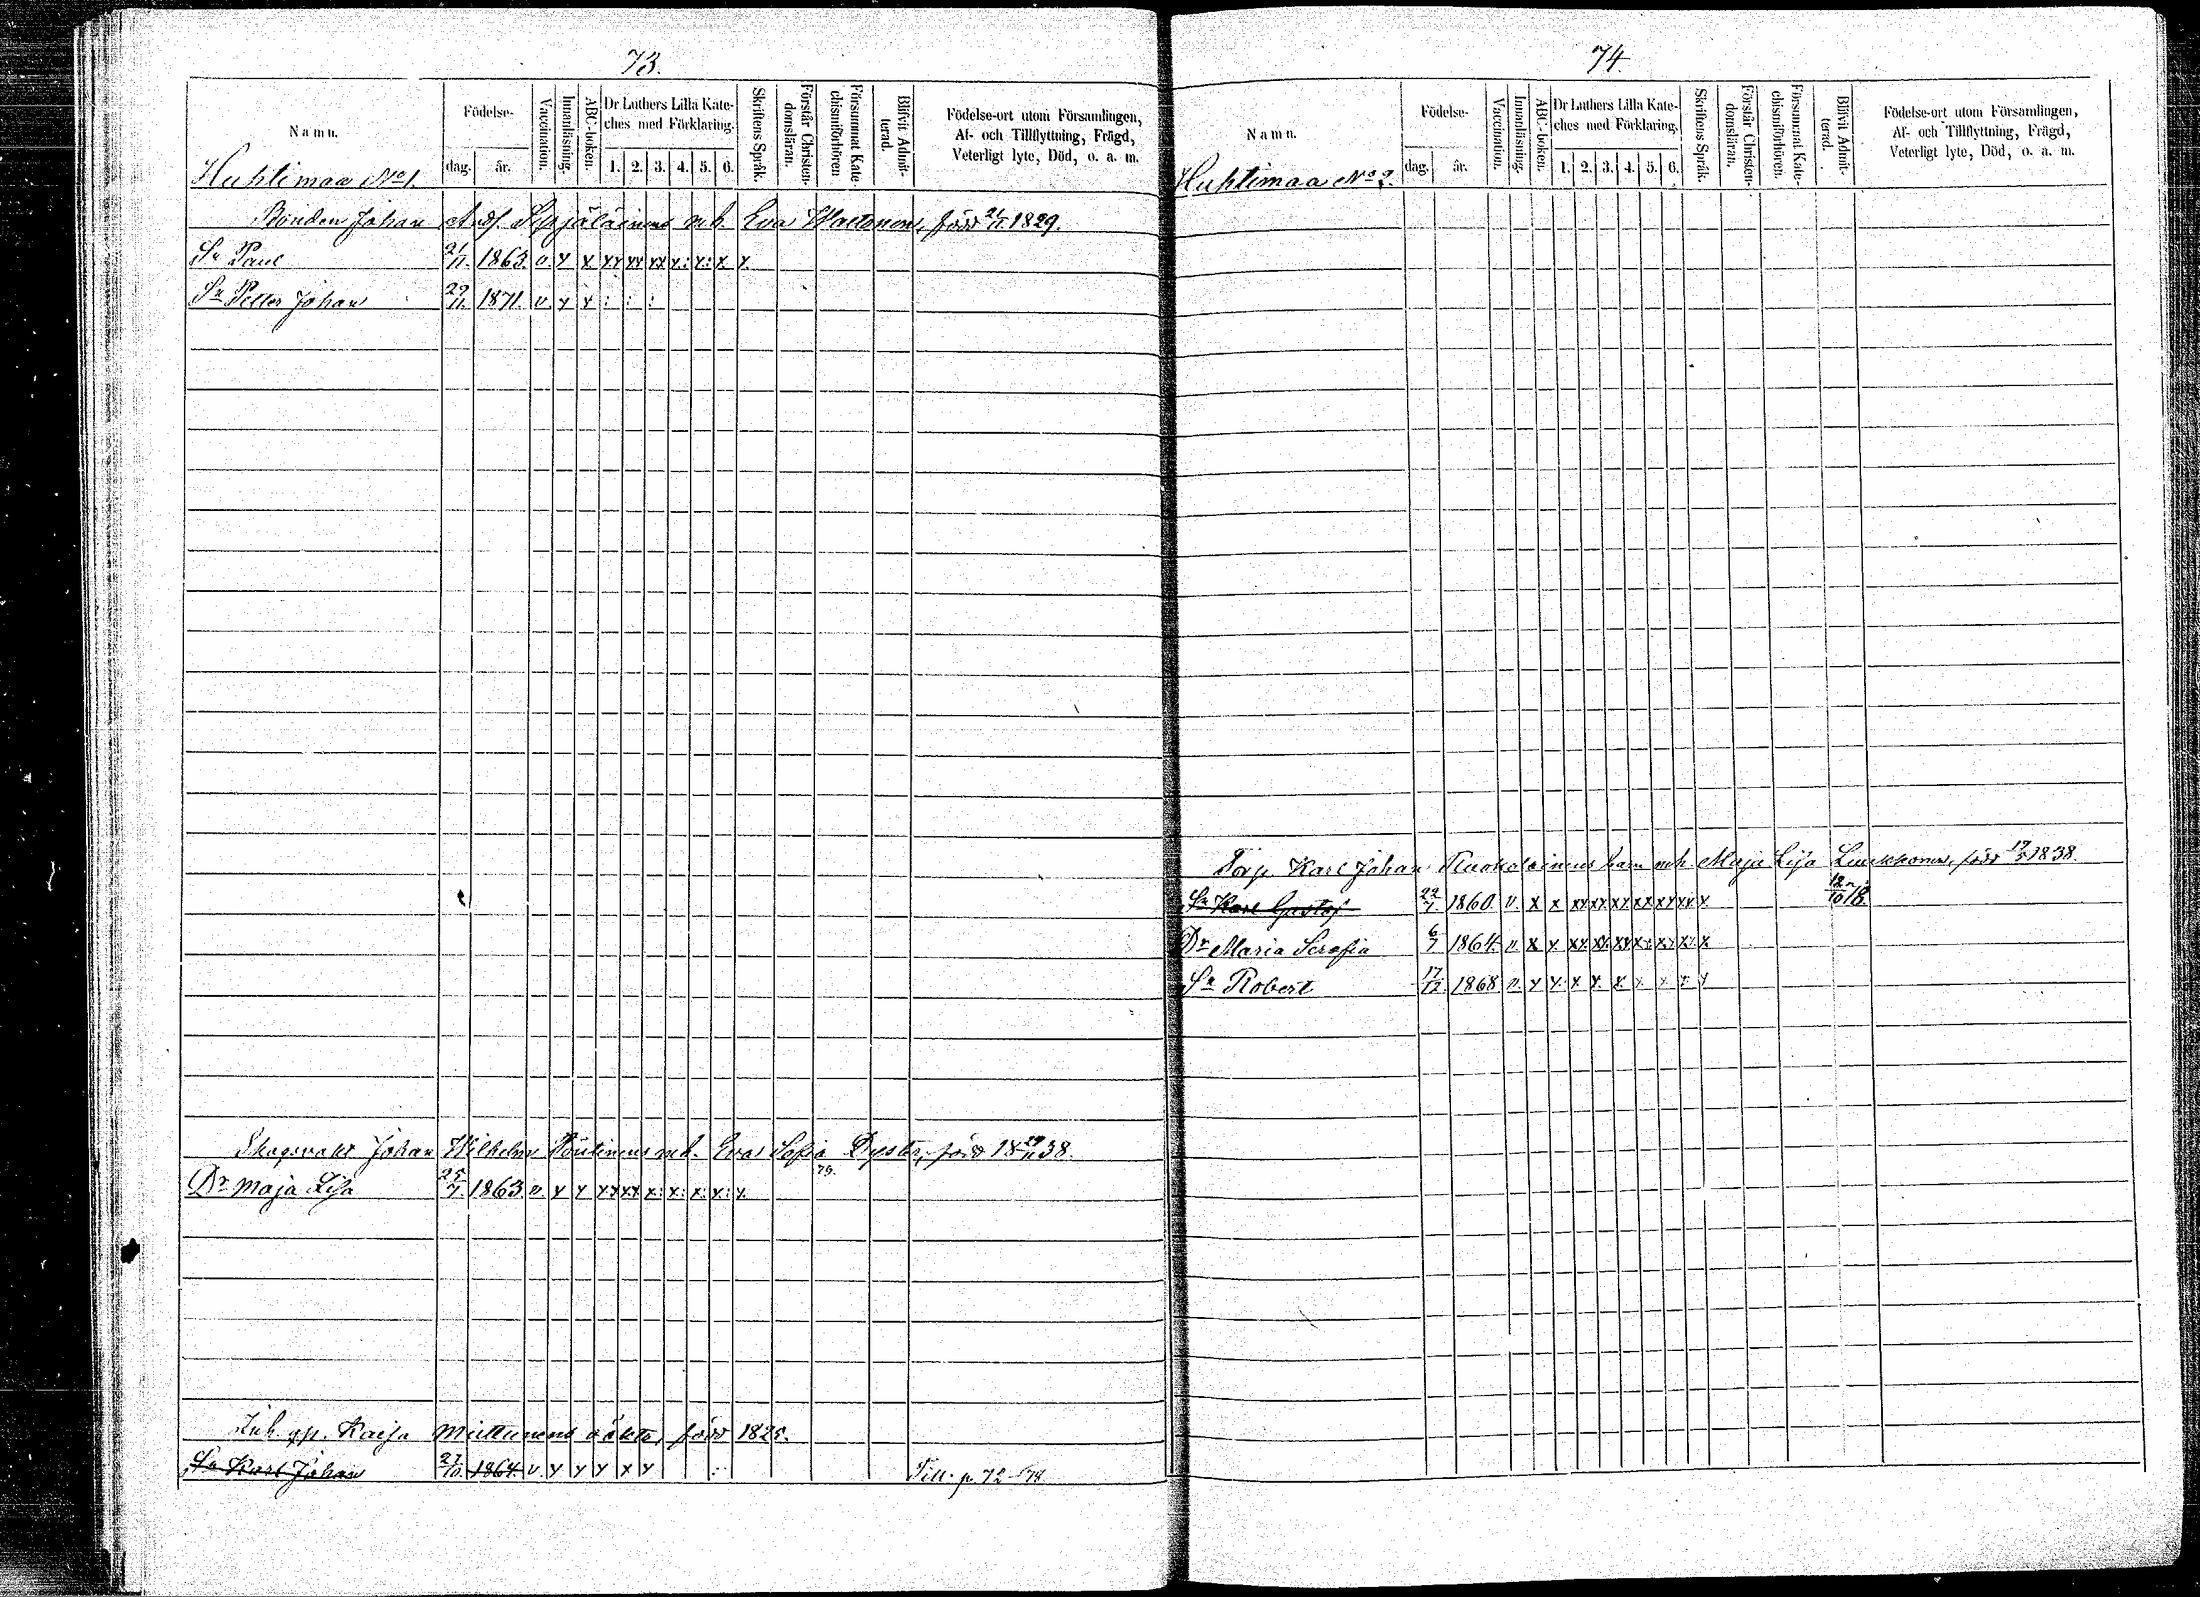 73.
Namn.
Födelse-
dag.
år.
Vaccination.
Innanläsning.
ABC-boken.
Dr Luthers Lilla Kate-
ches med Förklaring.
1. 2. 3. 4. 5. 6.
Skriftens Språk.
Förstår Christen-
domsläran.
Försummat Kate-
chismiförhören
Blifvit Admit-
terad.
Födelse-ort utom Församlingen,
Af- och Tillflyttning, Frägd,
Veterligt lyte, Död, o. a. m.
Huhtimaa No 1.
Bonden Johan And. enh. Eva född 1829.
Sn Paul 21/11 1863. v. x x xx xx xx x: x: x x
Sn Petter Johan 29/11 1871. v x x : : :
Skogsvakt Johan Wilhelm Pöntinens enh. Eva Sofia Dyster, född 18 29/11 38.
79.
Dr Maja Lisa 25/7 1863 v x x xx xx x: x: x: x: x
Inh. Kaisa Miettunens född 1825.
Sn Karl Johan 27/10 1864. v. x x x x x :
Till. p. 72 -/78
74.
Namn.
Födelse-
dag.
år.
Vaccination.
Innanläsning.
ABC-boken.
Dr Luthers Lilla Kate-
ches med Förklaring.
1. 2. 3. 4. 5. 6.
Skriftens Språk.
Förstår Christen-
domsläran.
Försummat Kate-
chismiförhören.
Blifvit Admit-
terad.
Födelse-ort utom Församlingen,
Af- och Tillflyttning, Frägd,
Veterligt lyte, Död, o. a. m.
Huhtimaa No 2.
Torp. Karl Johan Ruokolainens barn enh. Maja Lisa Luukkonen, född 1838.
Sn Karl Gustaf 22/7 1860. v. x x xx xx xx xx xx xx x 12/10 78.
Dr Maria Serafia 6/7 1864. v. x x xx xx xx xx xx x: x
Sn Robert 17/12 1868 v. x x x x x x x x x